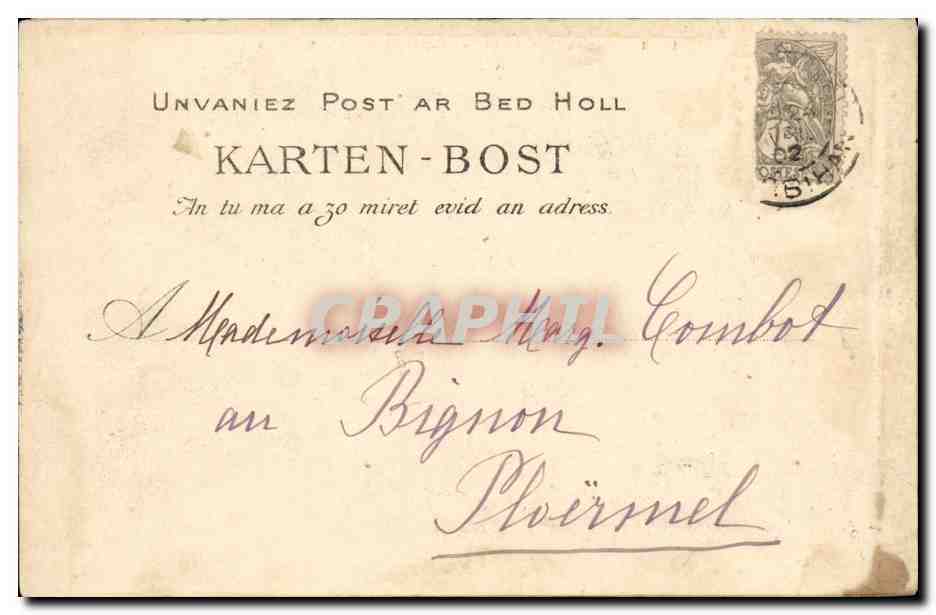 UNVANIEZ POST AR BED HOLL
KARTEN-BOST
An tu ma a zo miret evid an adress.
02
BIHAN
CRAPHIL
A Mademoiselle Marg. Combot
au Bignon
Ploërmel